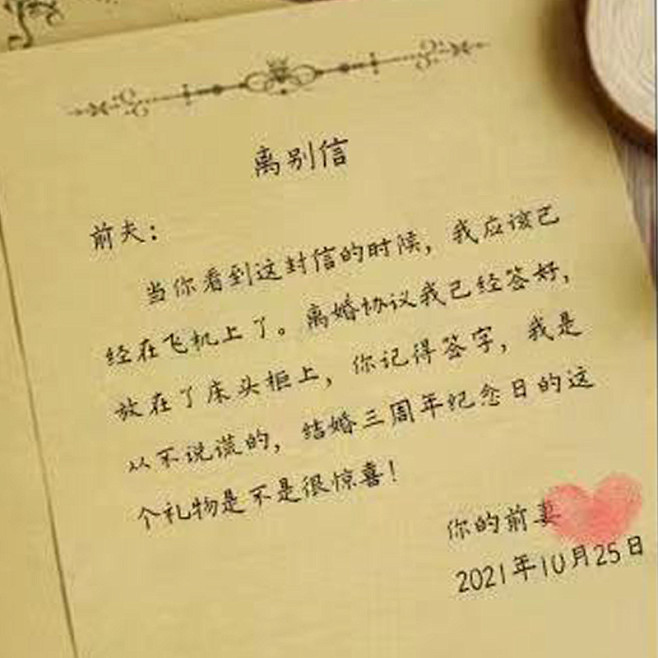 离别信
前夫：
当你看到这封信的时候，我应该已
经在飞机上了。离婚协议我已经签好，
放在了床头柜上，你记得签字，我是
从不说谎的，结婚三周年纪念日的这
个礼物是不是很惊喜！
你的前妻
2021年10月25日